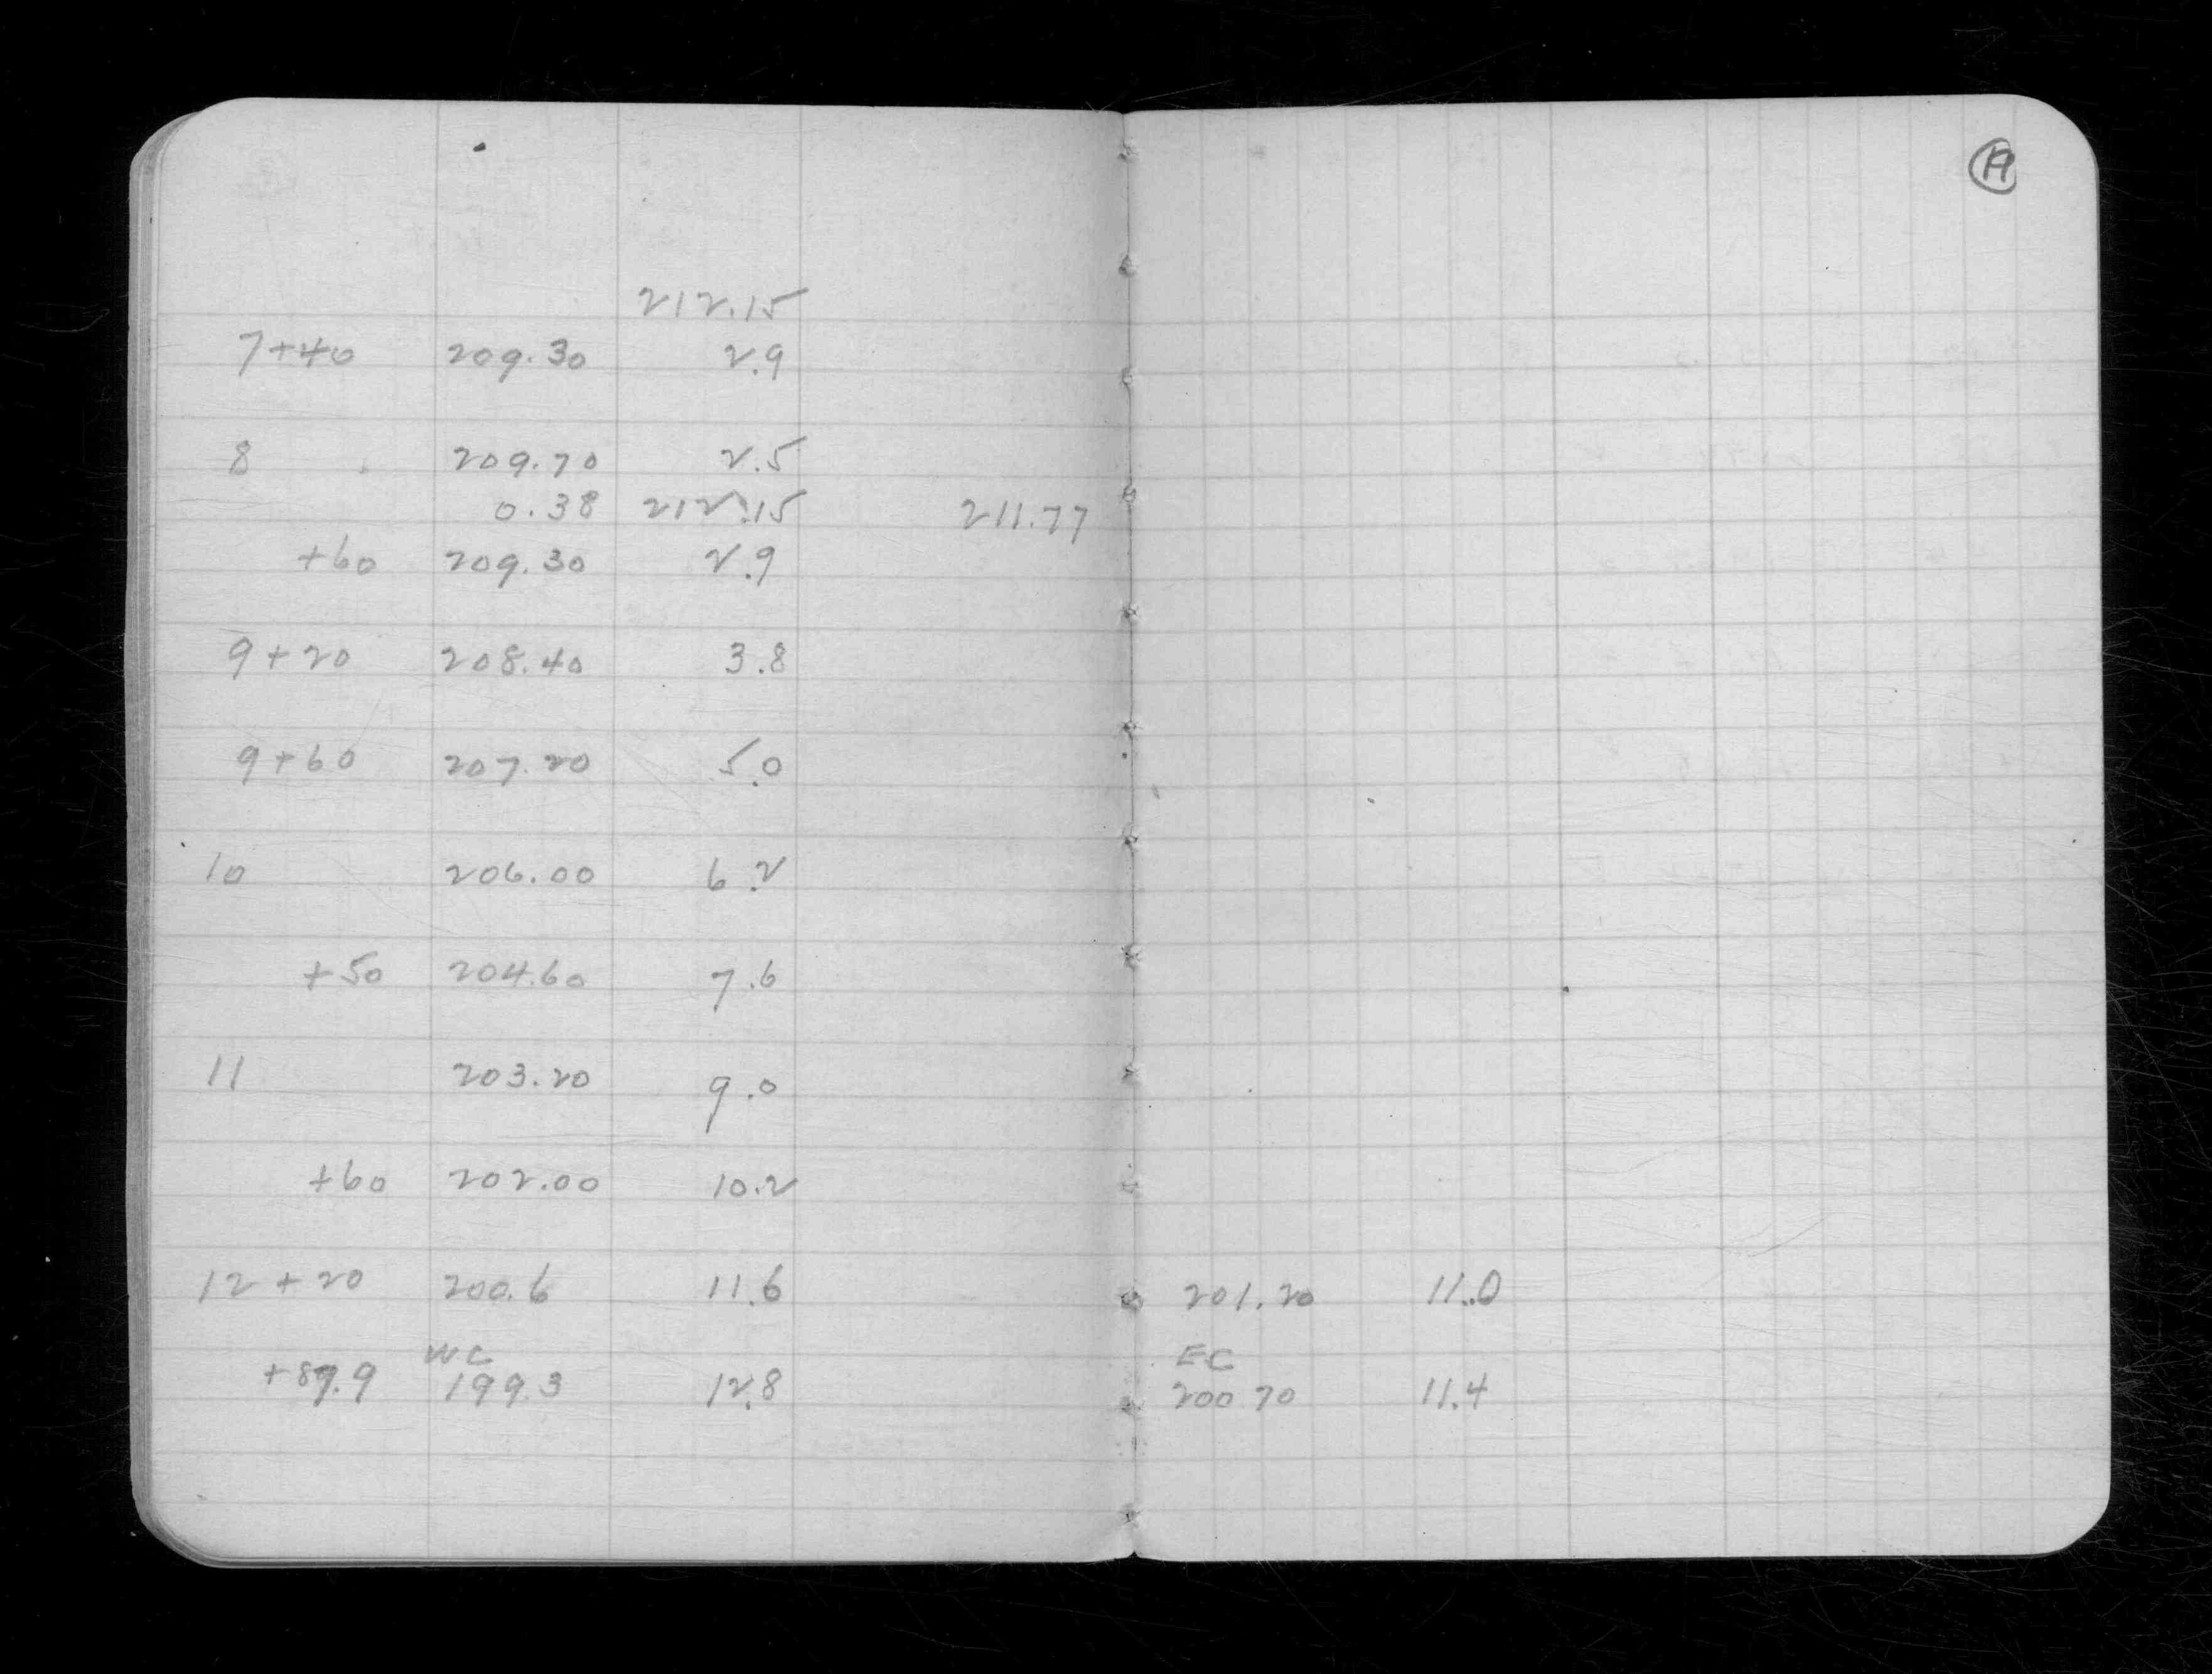 19
212.15
7+40 209.30 2.9
8 209.70 2.5
0.38 212.15 211.77
+60 209.30 2.9
9+20 208.40 3.8
9+60 207.20 5.0
10 206.00 6.2
+50 204.60 7.6
11 203.20 9.0
+60 202.00 10.2
12+20 200.6 11.6 201.20 11.0
WC EC
+89.9 199.3 12.8 200 70 11.4